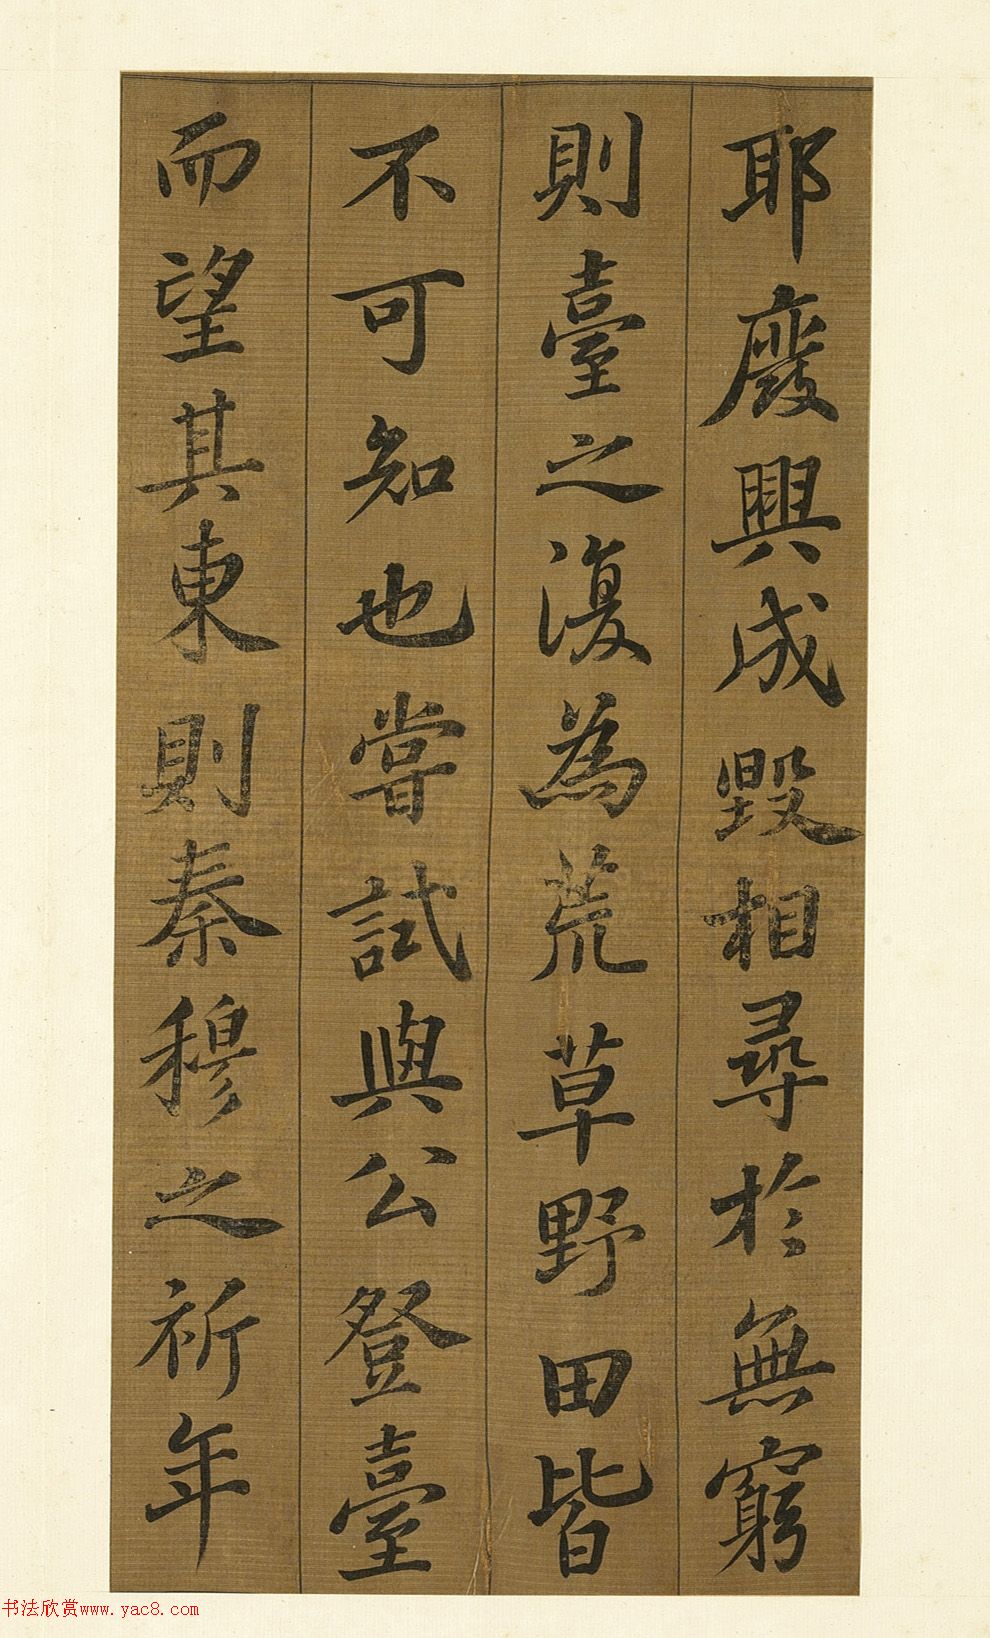 耶廢興成毀相尋於無窮
則臺之復為荒草野田皆
不可知也嘗試與公登臺
而望其東則秦穆之祈年
书法欣赏www.yac8.com